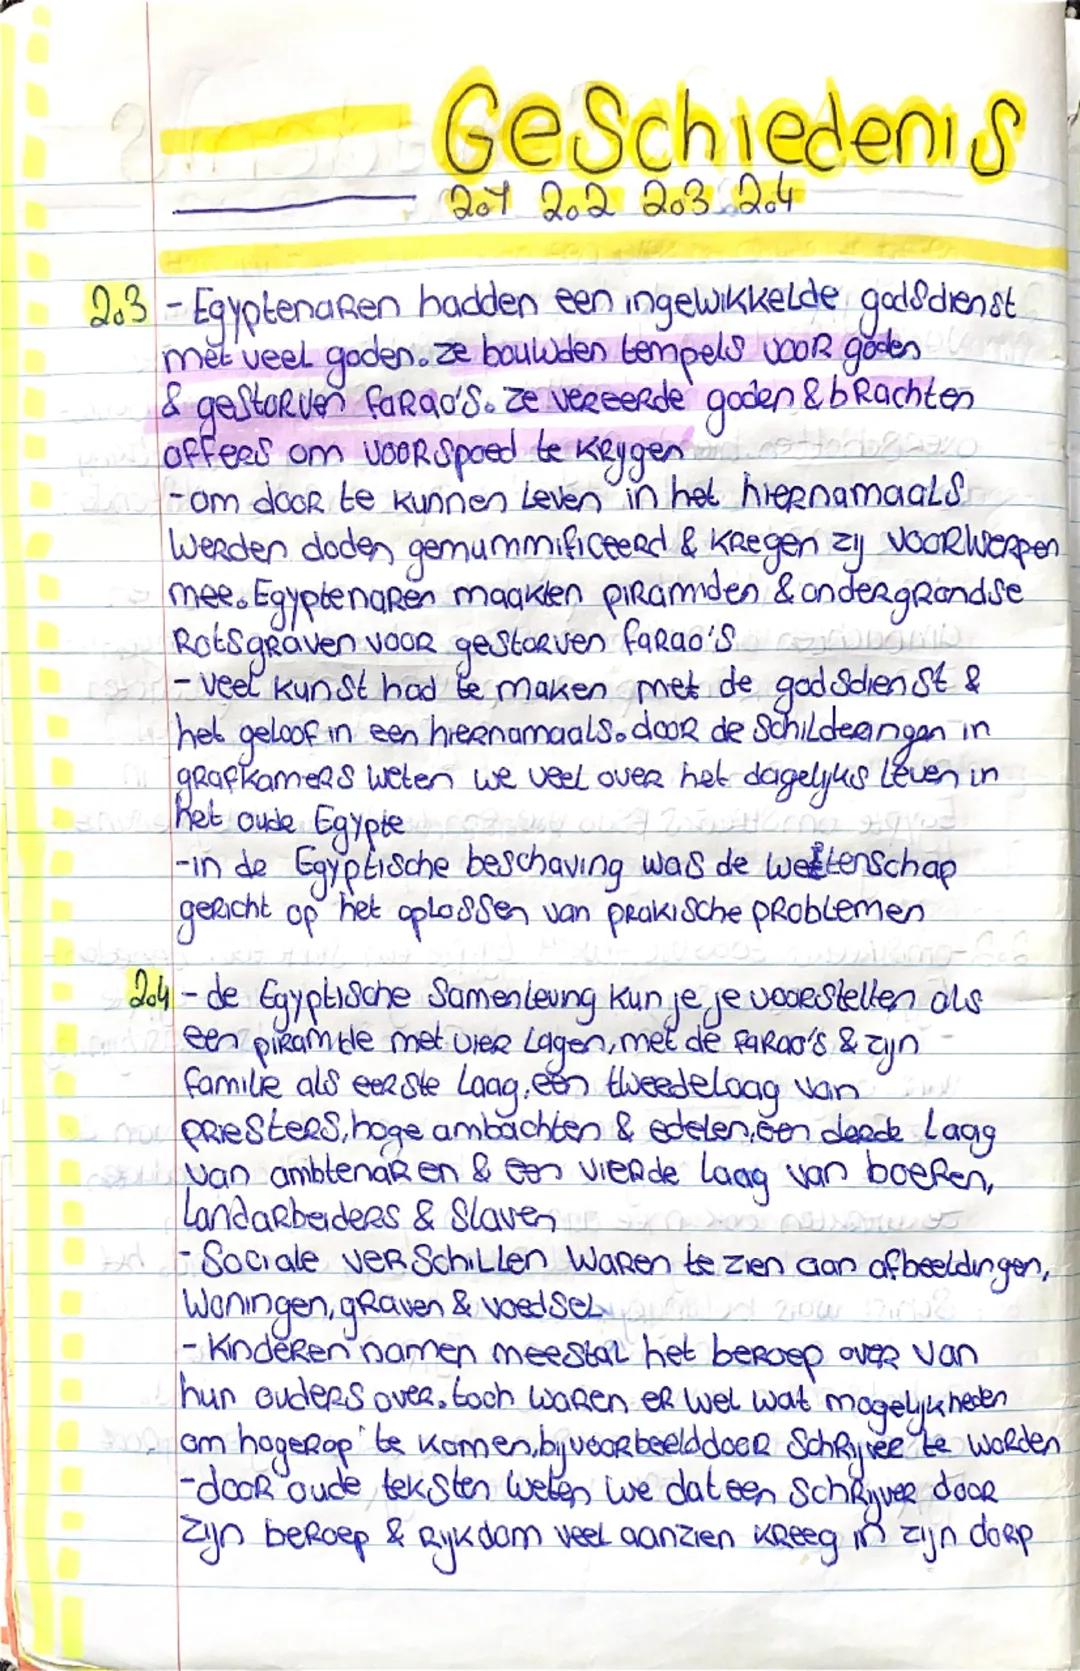 Geschiedenis
2.1 2.2 2.3 2.4
2.3 - Egyptenaren hadden een ingewikkelde godsdienst
met veel goden. ze bouwden tempels voor goden
& gestorven farao's. ze vereerde goden & brachten
offers om voorspoed te krygen
- om door te kunnen leven in het hiernamaals
werden doden gemummificeerd & kregen zij voorwerpen
mee. Egyptenaren maakten piramiden & ondergrondse
Rotsgraven voor gestorven farao's
- veel kunst had te maken met de godsdienst &
het geloof in een hiernamaals. door de schilderingen in
grafkamers weten we veel over het dagelijks leven in
het oude Egypte
- in de Egyptische beschaving was de wettenschap
gericht op het oplossen van prakische problemen
2.4 - de Egyptische samenleving kun je je voorstellen als
een piramide met vier lagen, met de farao's & zijn
familie als eerste laag, een tweede laag van
priesters, hoge ambachten & edelen, een derde laag
van ambtenaren & een vierde laag van boeren,
Landarbeiders & Slaven
- Sociale verschillen waren te zien aan afbeeldingen,
woningen, graven & voedsel
- Kinderen namen meestal het beroep over van
hun ouders over. toch waren er wel wat mogelijkheden
om hogerop te komen, bijvoorbeeld door schrijver te worden
- door oude teksten weten we dat een schrijver door
zijn beroep & rijkdom veel aanzien kreeg in zijn dorp